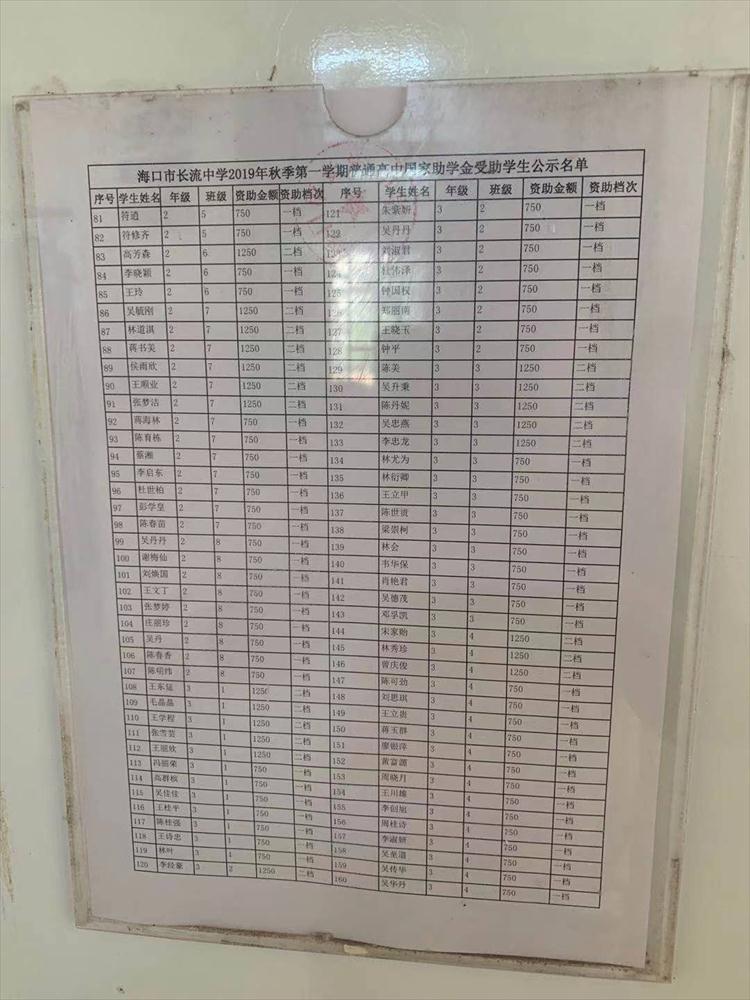 海口市长流中学2019年秋季第一学期普通高中国家助学金受助学生公示名单
序号 学生姓名 年级 班级 资助金额 资助档次 序号 学生姓名 年级 班级 资助金额 资助档次
81 符通 2 5 750 一档 121 朱紫妍 3 2 750 一档
82 符修齐 2 5 750 一档 122 吴丹丹 3 2 750 一档
83 高芳森 2 6 1250 二档 123 刘淑君 3 2 750 一档
84 李晓颖 2 6 750 一档 124 杜伟泽 3 2 750 一档
85 王玲 2 6 750 一档 125 钟国权 3 2 750 一档
86 吴毓刚 2 7 1250 二档 126 郑丽南 3 2 750 一档
87 林道淇 2 7 1250 二档 127 王晓玉 3 2 750 一档
88 蒋书芙 2 7 1250 二档 128 钟平 3 2 750 一档
89 侯雨欣 2 7 1250 二档 129 陈美 3 3 1250 二档
90 王顺业 2 7 1250 二档 130 吴升秉 3 3 1250 二档
91 张梦洁 2 7 1250 二档 131 陈丹妮 3 3 1250 二档
92 蒋海林 2 7 750 一档 132 吴忠燕 3 3 1250 二档
93 陈育栋 2 7 750 一档 133 李忠龙 3 3 1250 二档
94 蔡湘 2 7 750 一档 134 林尤为 3 3 750 一档
95 李启东 2 7 750 一档 135 林衍卿 3 3 750 一档
96 杜世柏 2 7 750 一档 136 王立甲 3 3 750 一档
97 彭学皇 2 7 750 一档 137 陈世贡 3 3 750 一档
98 陈春苗 2 7 750 一档 138 梁崇柯 3 3 750 一档
99 吴丹丹 2 8 750 一档 139 林会 3 3 750 一档
100 谢梅仙 2 8 750 一档 140 韦华保 3 3 750 一档
101 刘焕国 2 8 750 一档 141 肖艳君 3 3 750 一档
102 王文丁 2 8 750 一档 142 吴德茂 3 3 750 一档
103 张梦婷 2 8 750 一档 143 邓孚凯 3 3 750 一档
104 庄丽珍 2 8 750 一档 144 宋家贻 3 4 1250 二档
105 吴丹 2 8 750 一档 145 林秀珍 3 4 1250 二档
106 陈春香 2 8 750 一档 146 曾庆俊 3 4 1250 二档
107 陈明纬 2 8 750 一档 147 陈可劲 3 4 750 一档
108 王东延 3 1 1250 二档 148 刘思琪 3 4 750 一档
109 毛晶晶 3 1 1250 二档 149 王立贵 3 4 750 一档
110 王学程 3 1 1250 二档 150 蒋玉群 3 4 750 一档
111 张雪芸 3 1 1250 二档 151 廖银萍 3 4 750 一档
112 王丽欣 3 1 1250 二档 152 黄富源 3 4 750 一档
113 冯丽荣 3 1 750 一档 153 周晓月 3 4 750 一档
114 高群槟 3 1 750 一档 154 王川雄 3 4 750 一档
115 吴佳佳 3 1 750 一档 155 李创旭 3 4 750 一档
116 王桂平 3 1 750 一档 156 周桂诗 3 4 750 一档
117 陈桂强 3 1 750 一档 157 李淑妍 3 4 750 一档
118 王诗忠 3 1 750 一档 158 吴至道 3 4 750 一档
119 林叶 3 1 750 一档 159 吴传华 3 4 750 一档
120 李经豪 3 2 1250 二档 160 吴华丹 3 4 750 一档